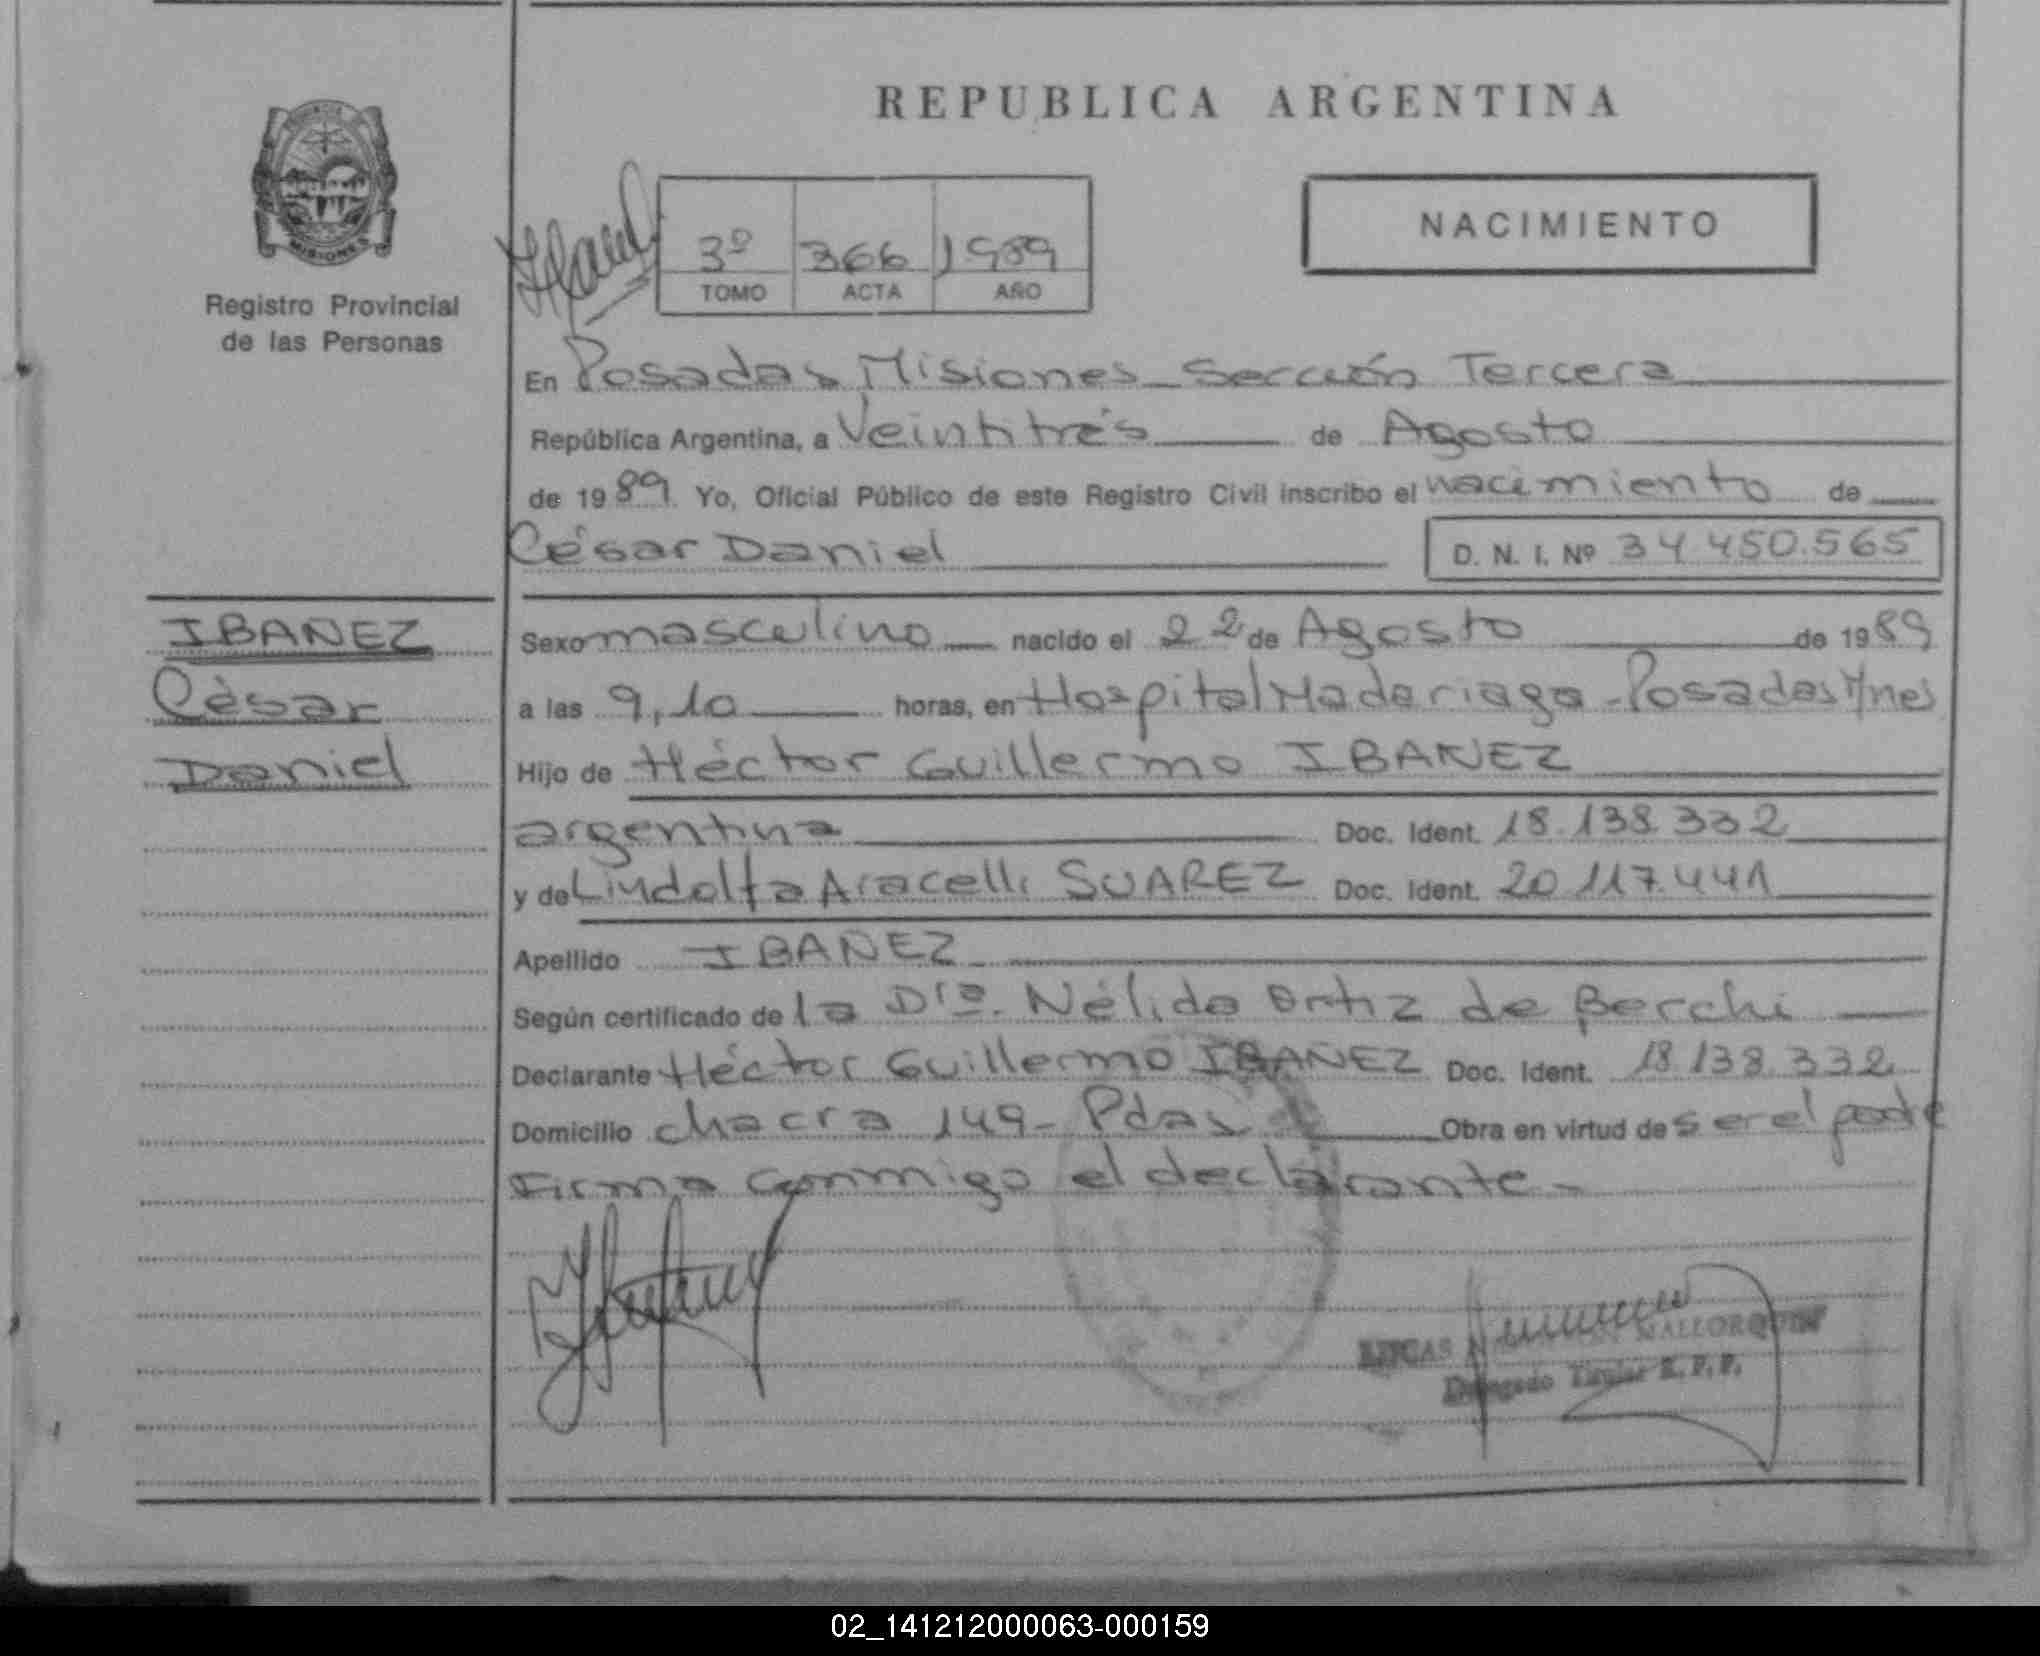 REPUBLICA ARGENTINA
NACIMIENTO
MISIONES
Registro Provincial
de las Personas
3º 366 1989
TOMO ACTA AÑO
En Posadas Misiones Sección Tercera
República Argentina, a Veintitrés de Agosto
de 1989. Yo, Oficial Público de este Registro Civil inscribo el nacimiento de
César Daniel D. N. I. Nº 34.450.565
IBAÑEZ
César
Daniel
Sexo masculino nacido el 22 de Agosto de 1989
a las 9,10 horas, en Hospital Madariaga - Posadas Mnes
Hijo de Héctor Guillermo IBAÑEZ
argentina Doc. Ident. 18.138.332
y de Lindolfa Aracelli SUAREZ Doc. Ident. 20.117.441
Apellido IBAÑEZ
Según certificado de la Dra. Nélida Ortiz de Berchi
Declarante Héctor Guillermo IBAÑEZ Doc. Ident. 18.138.332
Domicilio Chacra 149- Pdas Obra en virtud de ser el padre
Firma conmigo el declarante -
LUCAS MALLORQUIN
Delegado Titular R. P. P.
02_141212000063-000159